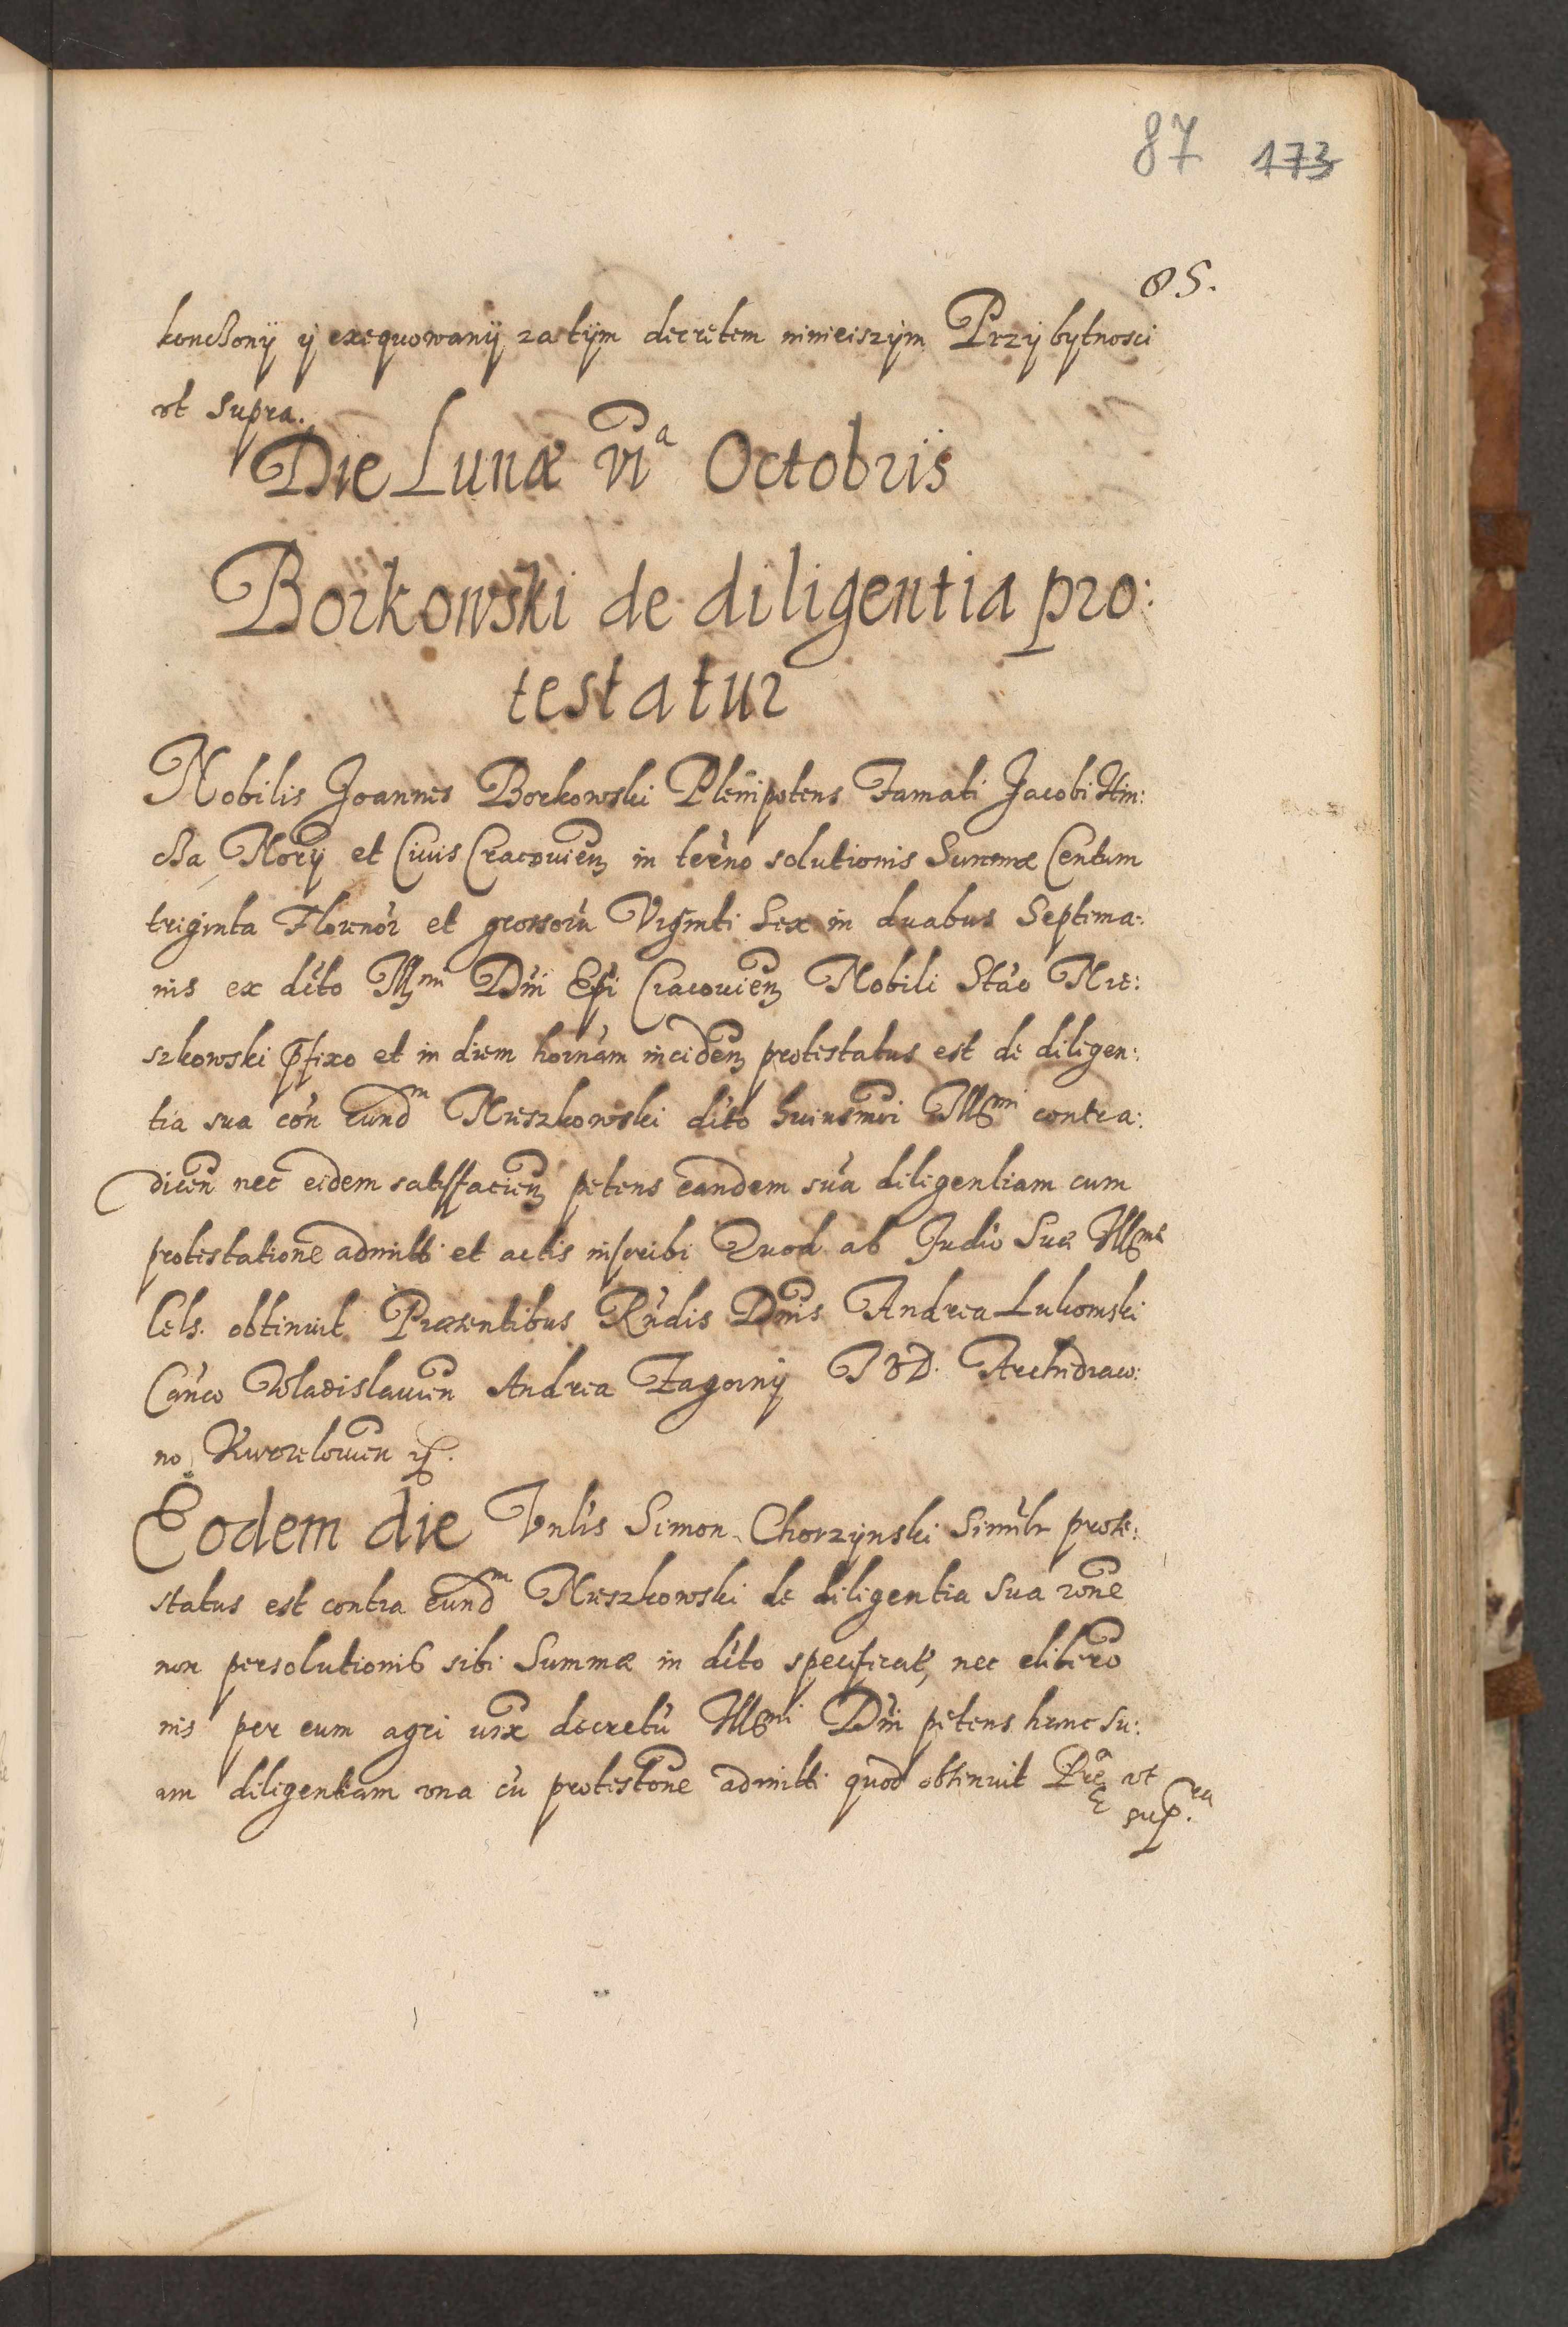 87 173
85.
konczonÿ ÿ exequowanÿ zatÿm decretem ninieiszÿm Przÿ bytnosci
vt supra.
Die Lunæ VIᵃ Octobris
Borkowski de diligentia pro:
testatur
Nobilis Joannes Borkowski Plenipotens Famati Jacobi
cza Norÿ et Ciuis Cracouien̄ in terno solutionis Summæ Centum
triginta Florenor et grossorū Viginti Sex in duabus Septima:
nis ex dito Illmi Dni Epi Cracouien̄ Nobili Stao Mie:
szkowski pfixo et in diem hornam inciden̄ protestatus est de diligen:
tia sua con eundm Mieszkowski dito huiusmoi Illmi contra:
dicen̄ nec eidem satisfacien̄ petens eandem suā diligentiam cum
protestatione admitti et actis inscribi Quod ab Judio Suæ Illmæ
Cels. obtinuit Præsentibus Rndis Dnis Andrea Lukomski
Canco Wladislauien̄ Andrea Zagornÿ JVD. Archidiaco:
no
Eodem die Vnlis Simon Chorzÿnski Similr prote:
status est contra eundm Mieszkowski de diligentia sua rōne
non persolutionis sibi Summæ in dito specificatæ, nec
nis per eum agri decretū Illmi Dni petens hanc su:
am diligentiam vna cū protestōne admitti quod obtinuit vt
supra.